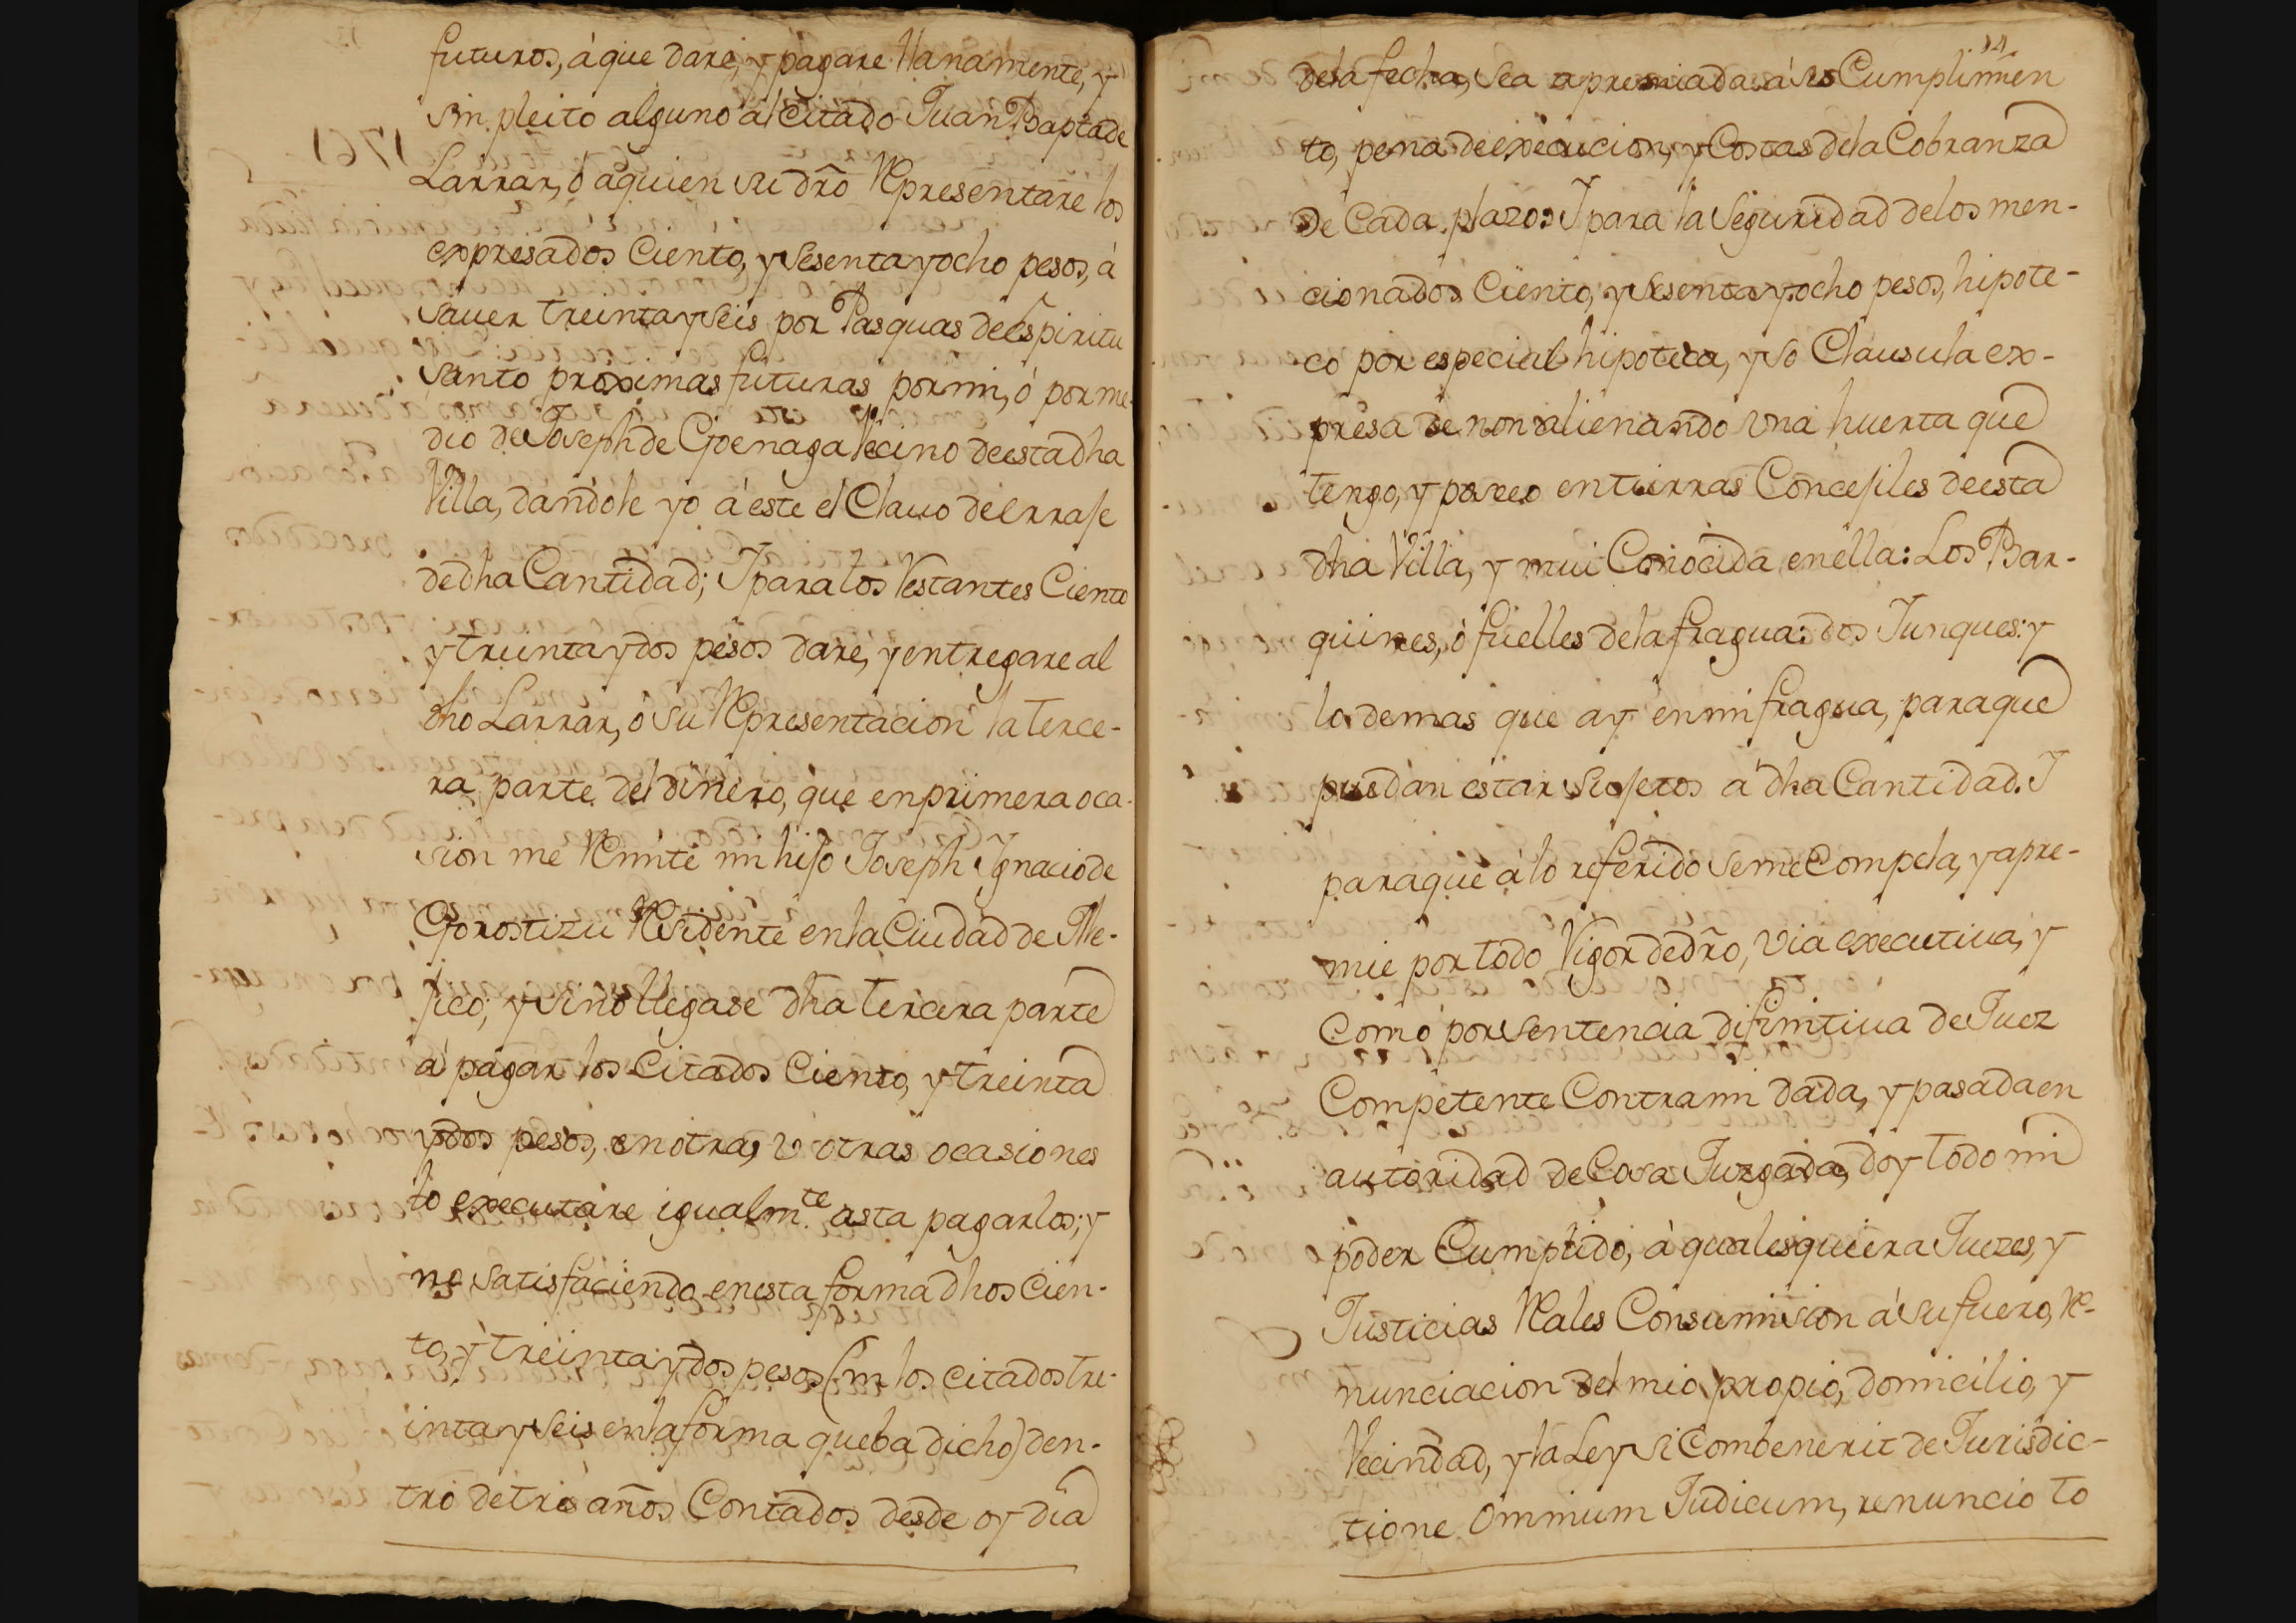 futuros, á que daré, y pagare llanamente, y
sin pleito alguno al citado Juan Bapta de
Larrar, ó aquien su dro Representare los
expresados Ciento, y sesenta y ocho pesos, á
sauer treinta y seis por Pasquas de espiritu
santo proximas futuras por mi, ó por me-
dio de Joseph de Goenaga Vecino de esta dha
Villa, dandole yo á este el Clauo de errase
de dha Cantidad; I para los Restantes Ciento
y treinta y dos pesos daré, y entregare al
dho Larrar, ó su Representacion la terce-
ra parte del dinero, que en primera oca-
sion me Rmite mi hijo Joseph Ignacio de
Gorostizu Residente en la Ciudad de Me-
jico; y si no llegase dha tercera parte
a pagar los Citados Ciento, y treinta
y dos pesos, en otra, v otras ocasiones
lo executare igualm.te asta pagarlos; y
no satisfaciendo en esta forma dhos Cien-
to, y treinta y dos pesos (sin los citados tre-
inta y seis en la forma que ba dicho) den-
tro de tres años Contados desde oy dia
14
dela fecha, sea apremiada á su Cumplimien
to, pena de execucion, y Costas dela Cobranza
de Cada plazo: I para la Seguridad delos men-
cionados Ciento, y sesenta y ocho pesos, hipote-
co por especial hipoteca, y so Clausula ex-
presa de non alienando vna huerta que
tengo, y poseo en tierras Concejiles de esta
dha Villa, y mui Conocida en ella: Los Bar-
quines, ó fuelles dela fragua: dos Iunques: y
lo demas que ay en mi fragua, para que
puedan estar sujetos á dha Cantidad. I
para que á lo referido se me Compela, y apre-
mie por todo Vigor de dro, via executiua, y
Como por sentencia difinitiua de Juez
Competente Contra mi dada, y pasada en
autoridad de Cosa Juzgada, doy todo mi
poder Cumplido, á qualesquiera Juezes, y
Justicias Rales Consumision á su fuero, Re-
nunciacion del mio propio, domicilio, y
Vecindad, y la Ley si Combenerit de Jurisdic-
tione Omnium Judicum, renuncio to